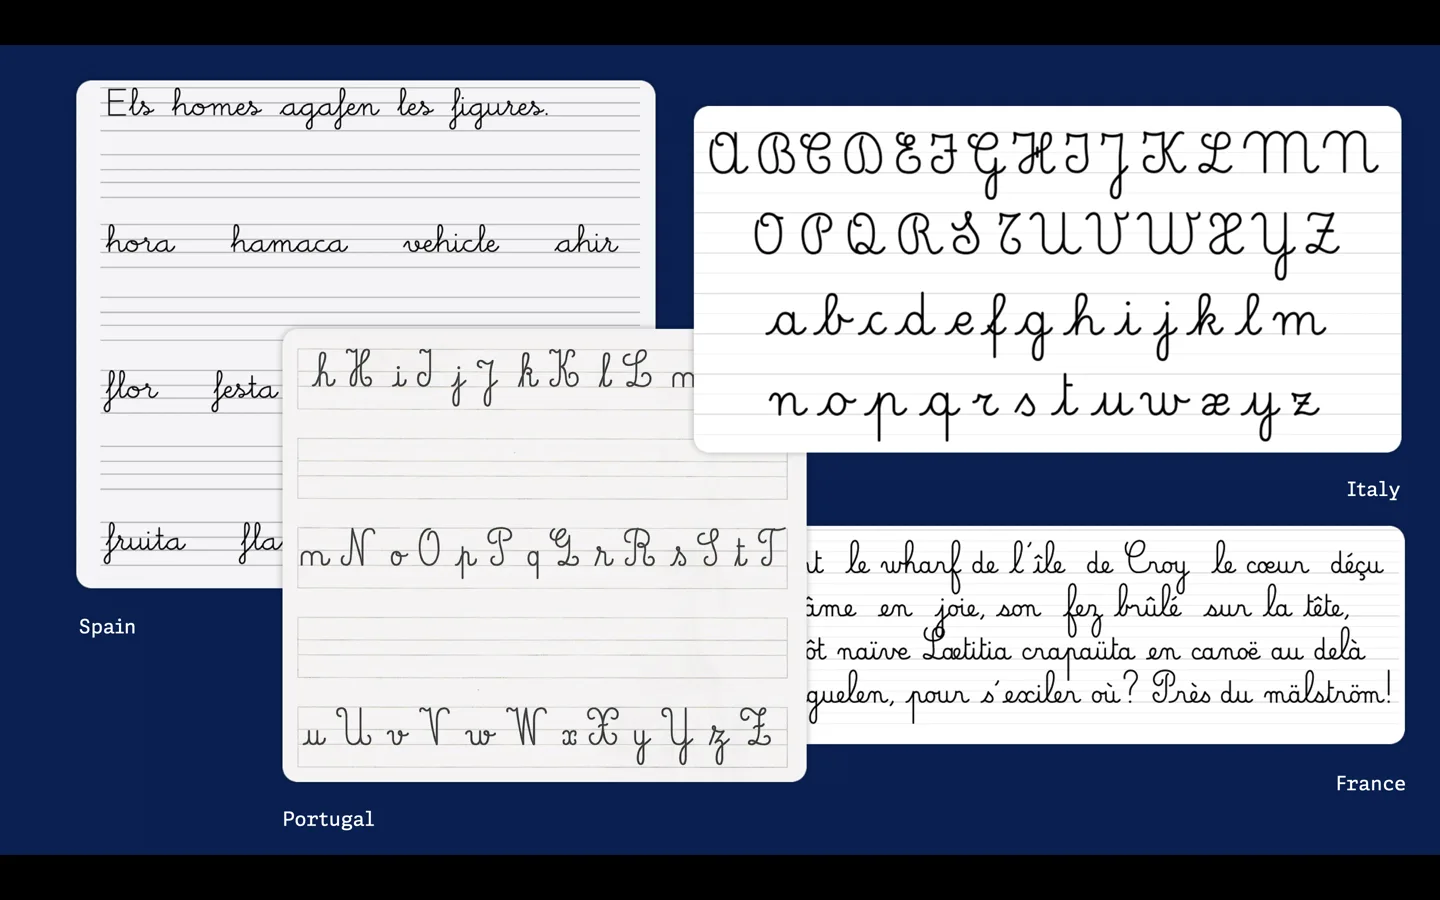 Els homes agafen les figures.
hora hamaca vehicle ahir
flor festa
fruita fla
Spain
h H i I j J k K l L m
m N o O p P q Q r R s S t T
u U v V w W x X y Y z Z
Portugal
A B C D E F G H I J K L M N
O P Q R S T U V W X Y Z
a b c d e f g h i j k l m
n o p q r s t u w x y z
Italy
le wharf de l'île de Croy le cœur déçu
âme en joie, son fez brûlé sur la tête,
ôt naïve Lætitia crapaüta en canoë au delà
guelen, pour s'exiler où? Près du mälström!
France